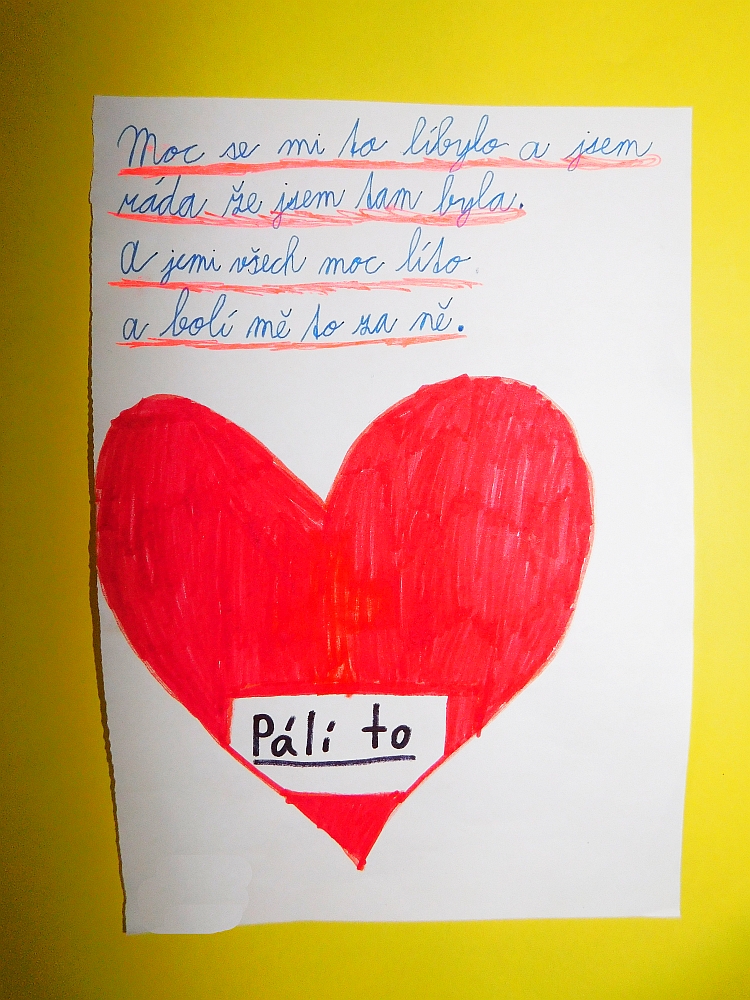 Moc se mi to líbylo a jsem
ráda že jsem tam byla.
A jemi všech moc líto.
a bolí mě to za ně.
Pálí to